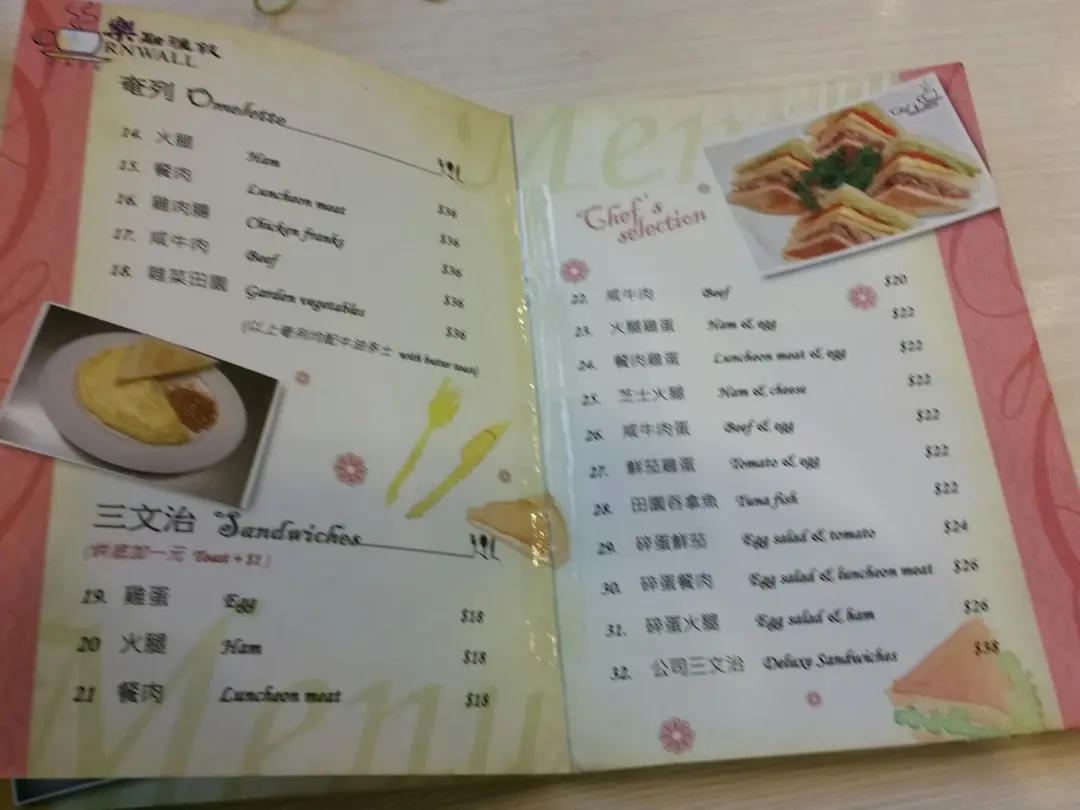 RNWALL
奄列 Omelette
14. 火腿 Ham $36
15. 餐肉 Luncheon meat $36
16. 雞肉腸 Chicken franks $36
17. 咸牛肉 Beef $36
18. 雜菜田園 Garden vegetables $36
(以上奄列均配牛油多士 with butter toast)
三文治 Sandwiches
(烘底加一元 Toast + $1)
19. 雞蛋 Egg $18
20 火腿 Ham $18
21 餐肉 Luncheon meat $18
Menu
Menu
Chef's
selection
22. 咸牛肉 Beef $20
23. 火腿雞蛋 Ham & egg $22
24. 餐肉雞蛋 Luncheon meat & egg $22
25. 芝士火腿 Ham & cheese $22
26. 咸牛肉蛋 Beef & egg $22
27. 鮮茄雞蛋 Tomato & egg $22
28. 田園吞拿魚 Tuna fish $22
29. 碎蛋鮮茄 Egg salad & tomato $24
30. 碎蛋餐肉 Egg salad & luncheon meat $26
31. 碎蛋火腿 Egg salad & ham $26
32. 公司三文治 Deluxy Sandwiches $38